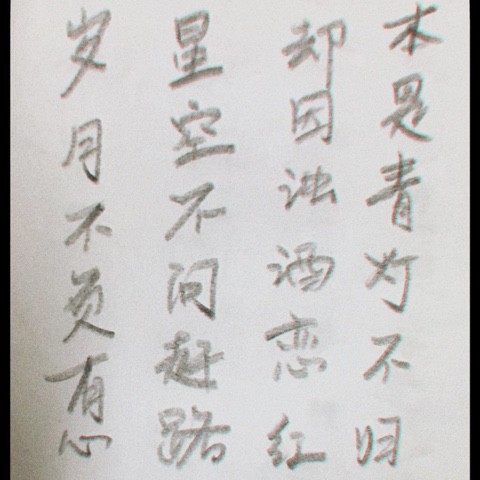 本是青灯不归
却因浊酒恋红
星空不问赶路
岁月不负有心